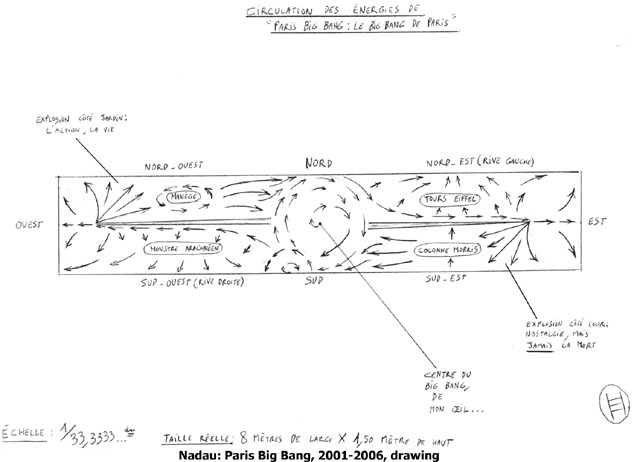 CIRCULATION DES ÉNERGIES DE
"PARIS BIG BANG: LE BIG BANG DE PARIS"
EXPLOSION CÔTÉ JARDIN:
L'ACTION, LA VIE
NORD-OUEST
NORD
NORD-EST (RIVE GAUCHE)
MANÈGE
TOURS EIFFEL
OUEST
EST
MONSTRE ARACHNÉEN
COLONNE MORRIS
SUD-OUEST (RIVE DROITE)
SUD
SUD-EST
EXPLOSION CÔTÉ COUR:
NOSTALGIE, MAIS
JAMAIS LA MORT
CENTRE DU
BIG BANG,
DE
MON ŒIL...
ÉCHELLE: 1/33,3333...
TAILLE RÉELLE: 8 MÈTRES DE LARGE X 1,50 MÈTRE DE HAUT
Nadau: Paris Big Bang, 2001-2006, drawing